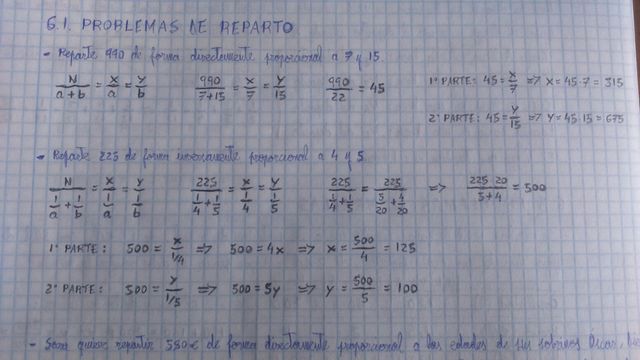 6.1. PROBLEMAS DE REPARTO
- Reparte 990 de forma directamente proporcional a 7 y 15.
N/(a+b) = x/a = y/b    990/(7+15) = x/7 = y/15    990/22 = 45    1ª PARTE: 45 = x/7 => x = 45·7 = 315
2ª PARTE: 45 = y/15 => y = 45·15 = 675
- Reparte 225 de forma inversamente proporcional a 4 y 5.
N/(1/a + 1/b) = x/(1/a) = y/(1/b)    225/(1/4 + 1/5) = x/(1/4) = y/(1/5)    225/(1/4 + 1/5) = 225/(5/20 + 4/20) => 225·20/(5+4) = 500
1ª PARTE: 500 = x/(1/4) => 500 = 4x => x = 500/4 = 125
2ª PARTE: 500 = y/(1/5) => 500 = 5y => y = 500/5 = 100
- Sara quiere repartir 580€ de forma directamente proporcional a las edades de sus sobrinos Oscar,